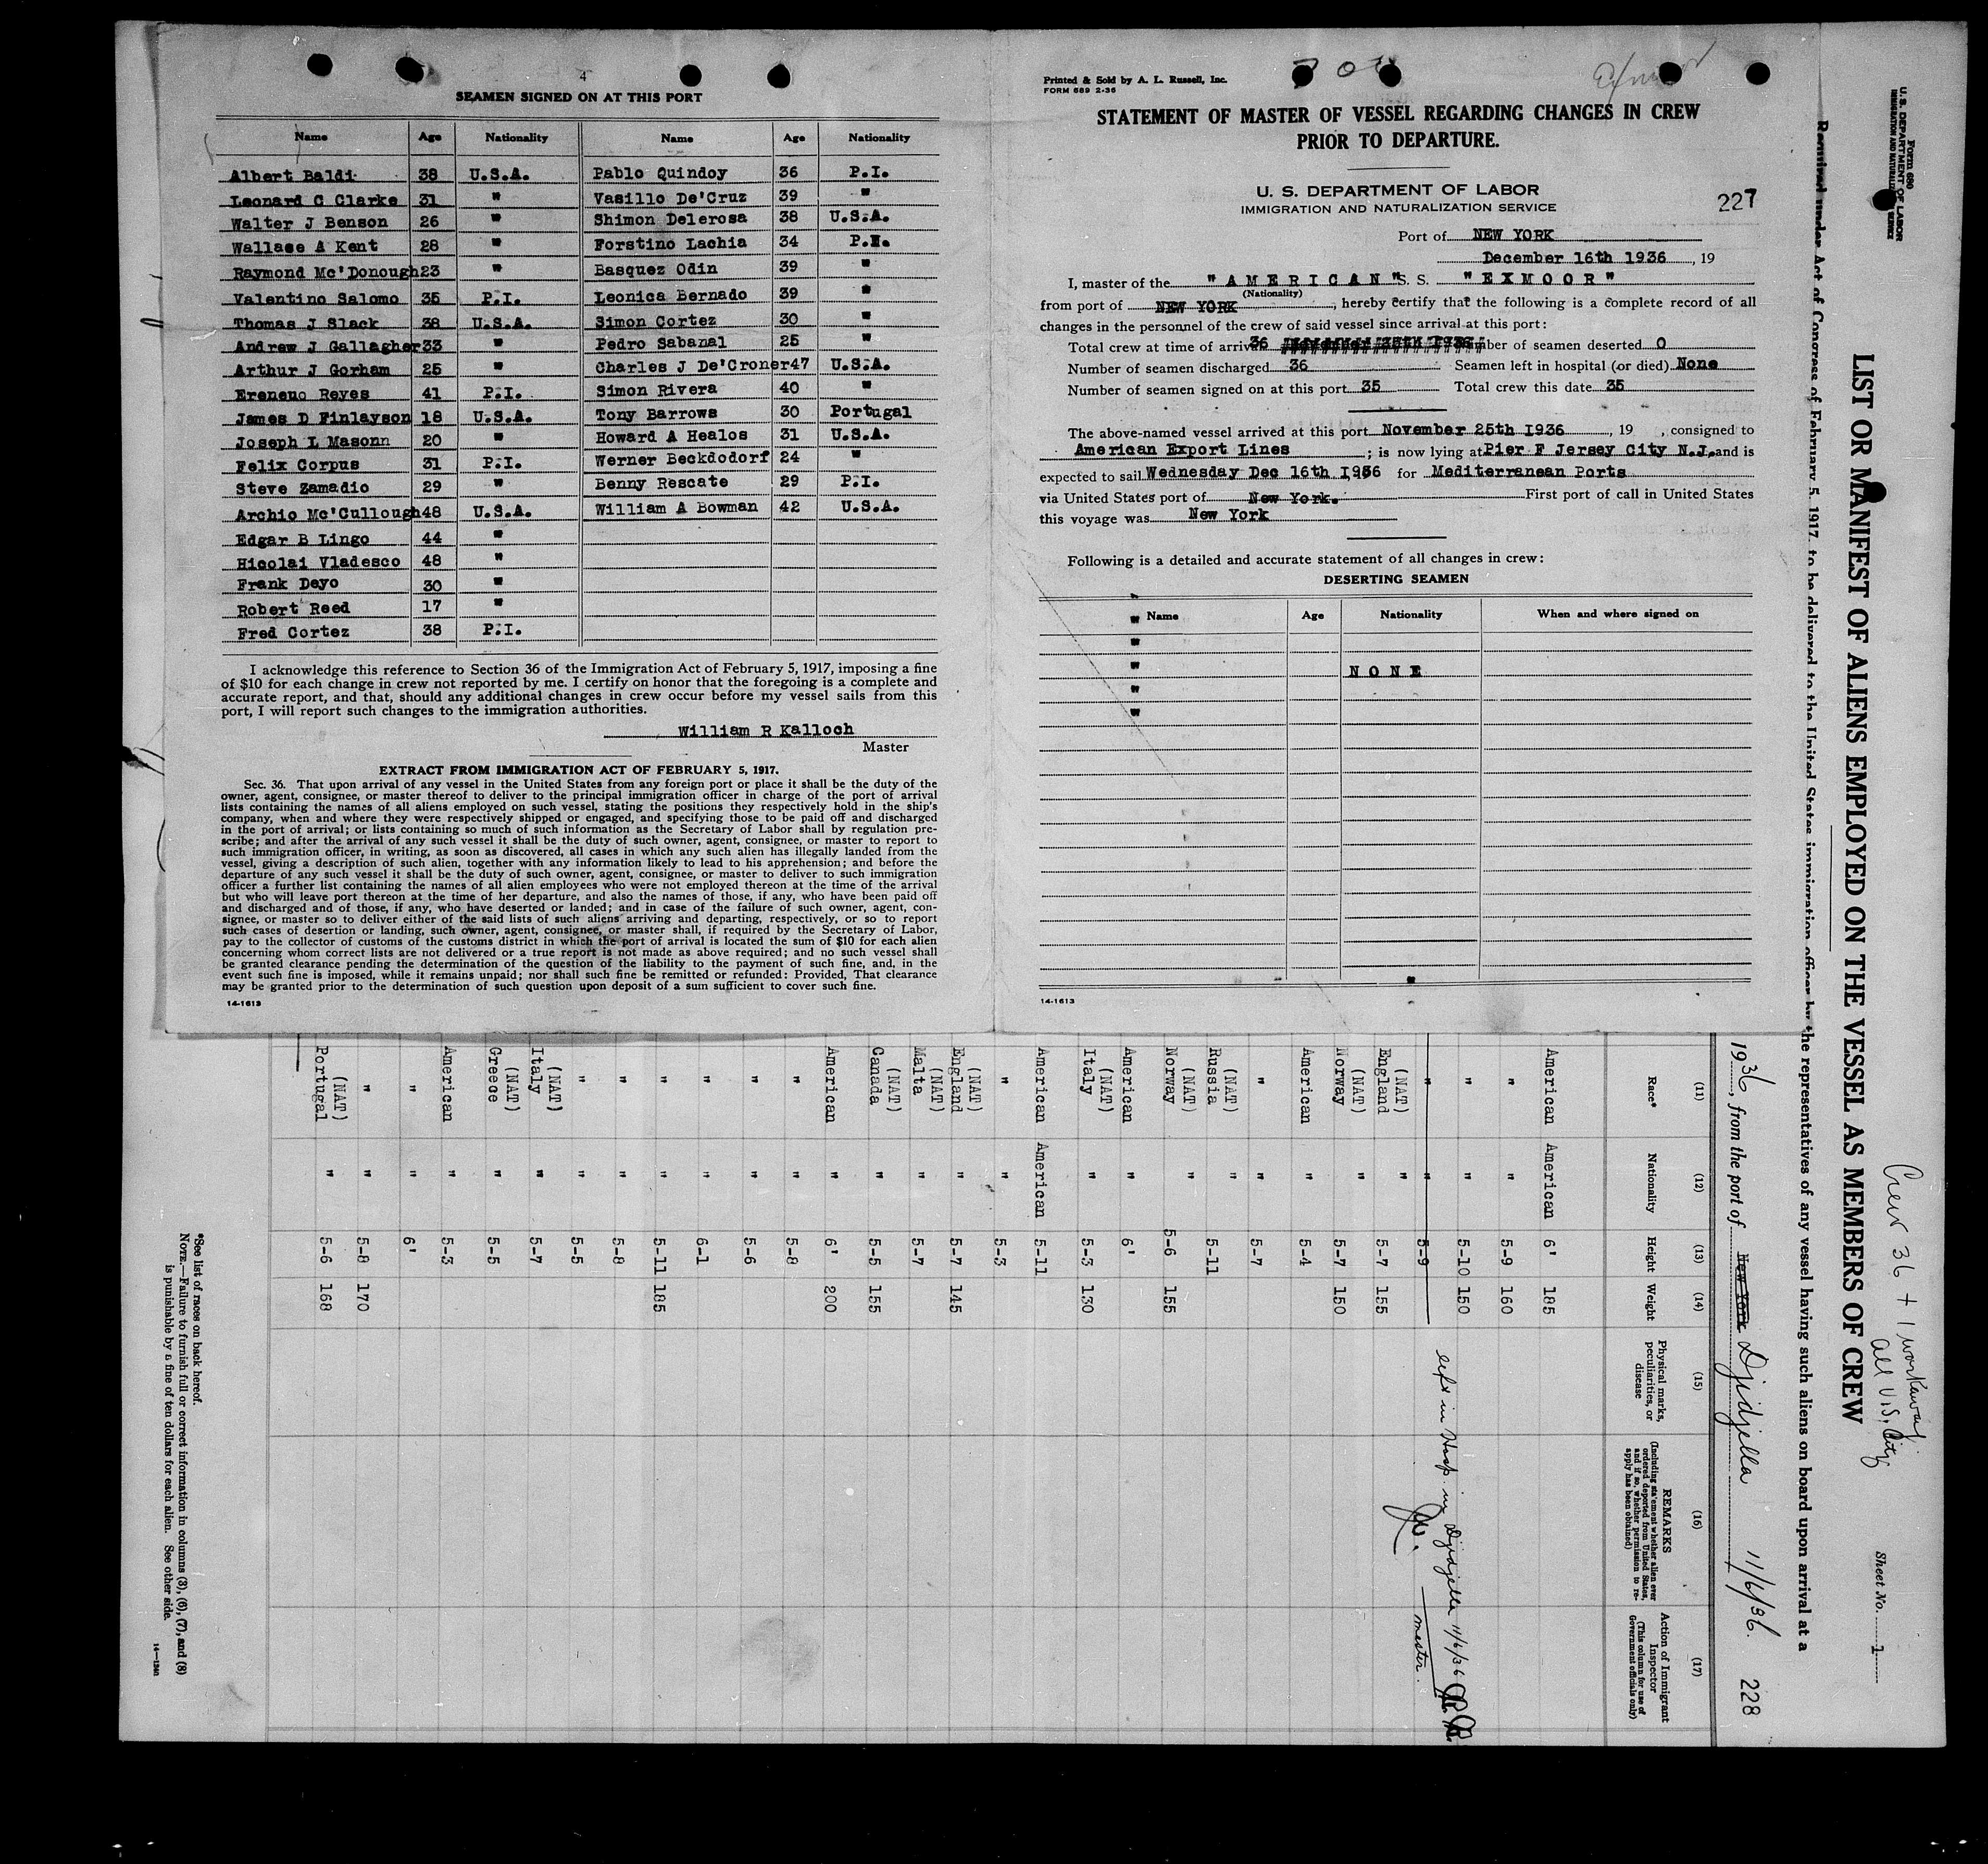 4
SEAMEN SIGNED ON AT THIS PORT
Name Age Nationality Name Age Nationality
Albert Baldi 38 U.S.A. Pablo Quindoy 36 P.I.
Leonard C Clarke 31 " Vasillo De'Cruz 39 "
Walter J Benson 26 " Shimon Delerosa 38 U.S.A.
Wallace A Kent 28 " Forstino Lachia 34 P.I.
Raymond Mc'Donough 23 " Basquez Odin 39 "
Valentino Salomo 35 P.I. Leonica Bernado 39 "
Thomas J Slack 38 U.S.A. Simon Cortez 30 "
Andrew J Gallagher 33 " Pedro Sabanal 25 "
Arthur J Gorham 25 " Charles J De'Croner 47 U.S.A.
Ereneuo Reyes 41 P.I. Simon Rivera 40 "
James D Finlayson 18 U.S.A. Tony Barrows 30 Portugal
Joseph L Masonn 20 " Howard A Healos 31 U.S.A.
Felix Corpus 31 P.I. Werner Beckdodorf 24 "
Steve Zamadio 29 " Benny Rescate 29 P.I.
Archie Mc'Cullough 48 U.S.A. William A Bowman 42 U.S.A.
Edgar B Lingo 44 "
Nicolai Vladesco 48 "
Frank Deyo 30 "
Robert Reed 17 "
Fred Cortez 38 P.I.
I acknowledge this reference to Section 36 of the Immigration Act of February 5, 1917, imposing a fine
of $10 for each change in crew not reported by me. I certify on honor that the foregoing is a complete and
accurate report, and that, should any additional changes in crew occur before my vessel sails from this
port, I will report such changes to the immigration authorities.
William R Kalloch
Master
EXTRACT FROM IMMIGRATION ACT OF FEBRUARY 5, 1917.
Sec. 36. That upon arrival of any vessel in the United States from any foreign port or place it shall be the duty of the
owner, agent, consignee, or master thereof to deliver to the principal immigration officer in charge of the port of arrival
lists containing the names of all aliens employed on such vessel, stating the positions they respectively hold in the ship's
company, when and where they were respectively shipped or engaged, and specifying those to be paid off and discharged
in the port of arrival; or lists containing so much of such information as the Secretary of Labor shall by regulation pre-
scribe; and after the arrival of any such vessel it shall be the duty of such owner, agent, consignee, or master to report to
such immigration officer, in writing, as soon as discovered, all cases in which any such alien has illegally landed from the
vessel, giving a description of such alien, together with any information likely to lead to his apprehension; and before the
departure of any such vessel it shall be the duty of such owner, agent, consignee, or master to deliver to such immigration
officer a further list containing the names of all alien employees who were not employed thereon at the time of the arrival
but who will leave port thereon at the time of her departure, and also the names of those, if any, who have been paid off
and discharged and of those, if any, who have deserted or landed; and in case of the failure of such owner, agent, con-
signee, or master so to deliver either of the said lists of such aliens arriving and departing, respectively, or so to report
such cases of desertion or landing, such owner, agent, consignee, or master shall, if required by the Secretary of Labor,
pay to the collector of customs of the customs district in which the port of arrival is located the sum of $10 for each alien
concerning whom correct lists are not delivered or a true report is not made as above required; and no such vessel shall
be granted clearance pending the determination of the question of the liability to the payment of such fine, and, in the
event such fine is imposed, while it remains unpaid; nor shall such fine be remitted or refunded: Provided, That clearance
may be granted prior to the determination of such question upon deposit of a sum sufficient to cover such fine.
14-1613
Printed & Sold by A. L. Russell, Inc.
FORM 689 2-36
Exmoor
STATEMENT OF MASTER OF VESSEL REGARDING CHANGES IN CREW
PRIOR TO DEPARTURE.
U. S. DEPARTMENT OF LABOR
IMMIGRATION AND NATURALIZATION SERVICE
227
Port of NEW YORK
December 16th 1936, 19
I, master of the "AMERICAN" S. S. "EXMOOR"
(Nationality)
from port of NEW YORK, hereby certify that the following is a complete record of all
changes in the personnel of the crew of said vessel since arrival at this port:
Total crew at time of arrival 36 November 25th 1936 Number of seamen deserted 0
Number of seamen discharged 36 Seamen left in hospital (or died) None
Number of seamen signed on at this port 35 Total crew this date 35
The above-named vessel arrived at this port November 25th 1936, 19 , consigned to
American Export Lines; is now lying at Pier F Jersey City N.J. and is
expected to sail Wednesday Dec 16th 1936 for Mediterranean Ports
via United States port of New York. First port of call in United States
this voyage was New York
Following is a detailed and accurate statement of all changes in crew:
DESERTING SEAMEN
Name Age Nationality When and where signed on
"
"
"
" NONE
"
"
14-1613
Form 680
U. S. DEPARTMENT OF LABOR
IMMIGRATION AND NATURALIZATION SERVICE
LIST OR MANIFEST OF ALIENS EMPLOYED ON THE VESSEL AS MEMBERS OF CREW
Crew 36 + 1 workaway
all U.S. City
Sheet No. 1
Required under Act of Congress of February 5, 1917, to be delivered to the United States immigration officer by the representatives of any vessel having such aliens on board upon arrival at a
1936, from the port of New York Djidjella 11/6/36. 228
(11) (12) (13) (14) (15) (16) (17)
Race* Nationality Height Weight Physical marks, peculiarities, or disease REMARKS (Including statement whether alien ever ordered deported from United States, and if so, whether permission to reapply has been obtained) Action of Immigrant Inspector (This column for use of Government officials only)
American American 6' 185
" " 5-9 160
" " 5-10 150
" " 5-9 left in Hosp. in Djidjella 11/6/36
master.
(NAT) England " 5-7 155
(NAT) Norway " 5-7 150
American " 5-4
" " 5-7
(NAT) Russia " 5-11
(NAT) Norway " 5-6 155
American " 6'
(NAT) Italy " 5-3 130
American American 5-11
" " 5-3
(NAT) England " 5-7 145
(NAT) Malta " 5-7
(NAT) Canada " 5-5 155
American " 6' 200
" " 5-8
" " 5-6
" " 6-1
" " 5-11 185
" " 5-8
" " 5-5
(NAT) Italy " 5-7
(NAT) Greece " 5-5
American " 5-3
" " 6'
" " 5-8 170
(NAT) Portugal " 5-6 168
*See list of races on back hereof.
NOTE.—Failure to furnish full or correct information in columns (3), (6), (7), and (8)
is punishable by a fine of ten dollars for each alien. See other side.
14—1240